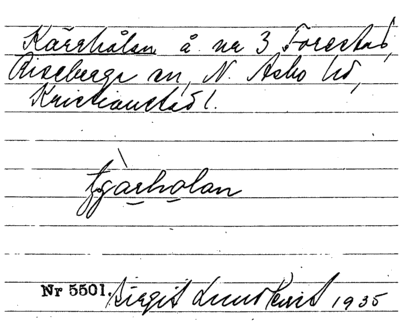 Kärrhålan å nr 3 Forestad,
Riseberga sn, N. Åsbo hd,
Kristianstad l.
Nr 5501. Birgit Lundkvist 1935